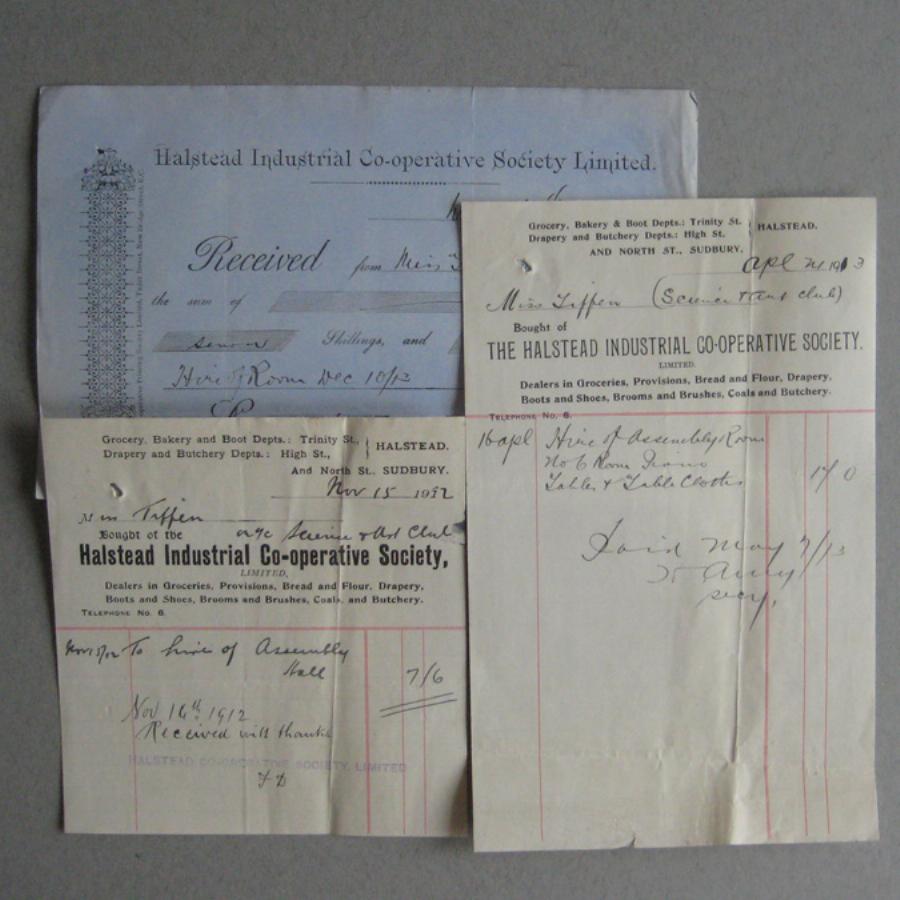 Halstead Industrial Co-operative Society Limited.
Received from Miss
the sum of
seven Shillings, and
Hire of Room Dec 10/12
Grocery, Bakery and Boot Depts.: Trinity St., HALSTEAD.
Drapery and Butchery Depts.: High St.,
And North St., SUDBURY.
Nov 15 1912
Miss Tiffen
Bought of the a/c Science & Art Club
Halstead Industrial Co-operative Society,
LIMITED,
Dealers in Groceries, Provisions, Bread and Flour, Drapery,
Boots and Shoes, Brooms and Brushes, Coals, and Butchery.
TELEPHONE No. 6.
Nov 15/12 To hire of Assembly
Hall 7/6
Nov 16th 1912
Received with thanks
HALSTEAD CO-OPERATIVE SOCIETY, LIMITED
Grocery, Bakery & Boot Depts.: Trinity St. HALSTEAD.
Drapery and Butchery Depts.: High St.
AND NORTH ST., SUDBURY.
Apl 1913
Miss Tiffen (Science & Art Club)
Bought of
THE HALSTEAD INDUSTRIAL CO-OPERATIVE SOCIETY.
LIMITED.
Dealers in Groceries, Provisions, Bread and Flour, Drapery,
Boots and Shoes, Brooms and Brushes, Coals and Butchery.
TELEPHONE No. 6.
16 apl Hire of Assembly Room
No 6 Room Piano
Tables & Table Cloths 17/0
Paid May 9/13
secy.